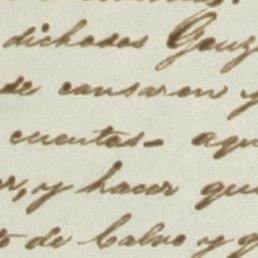 dichosos Gonz
de causaren y
cuentas- aqu
er, y hacer que
to de Calvo y q